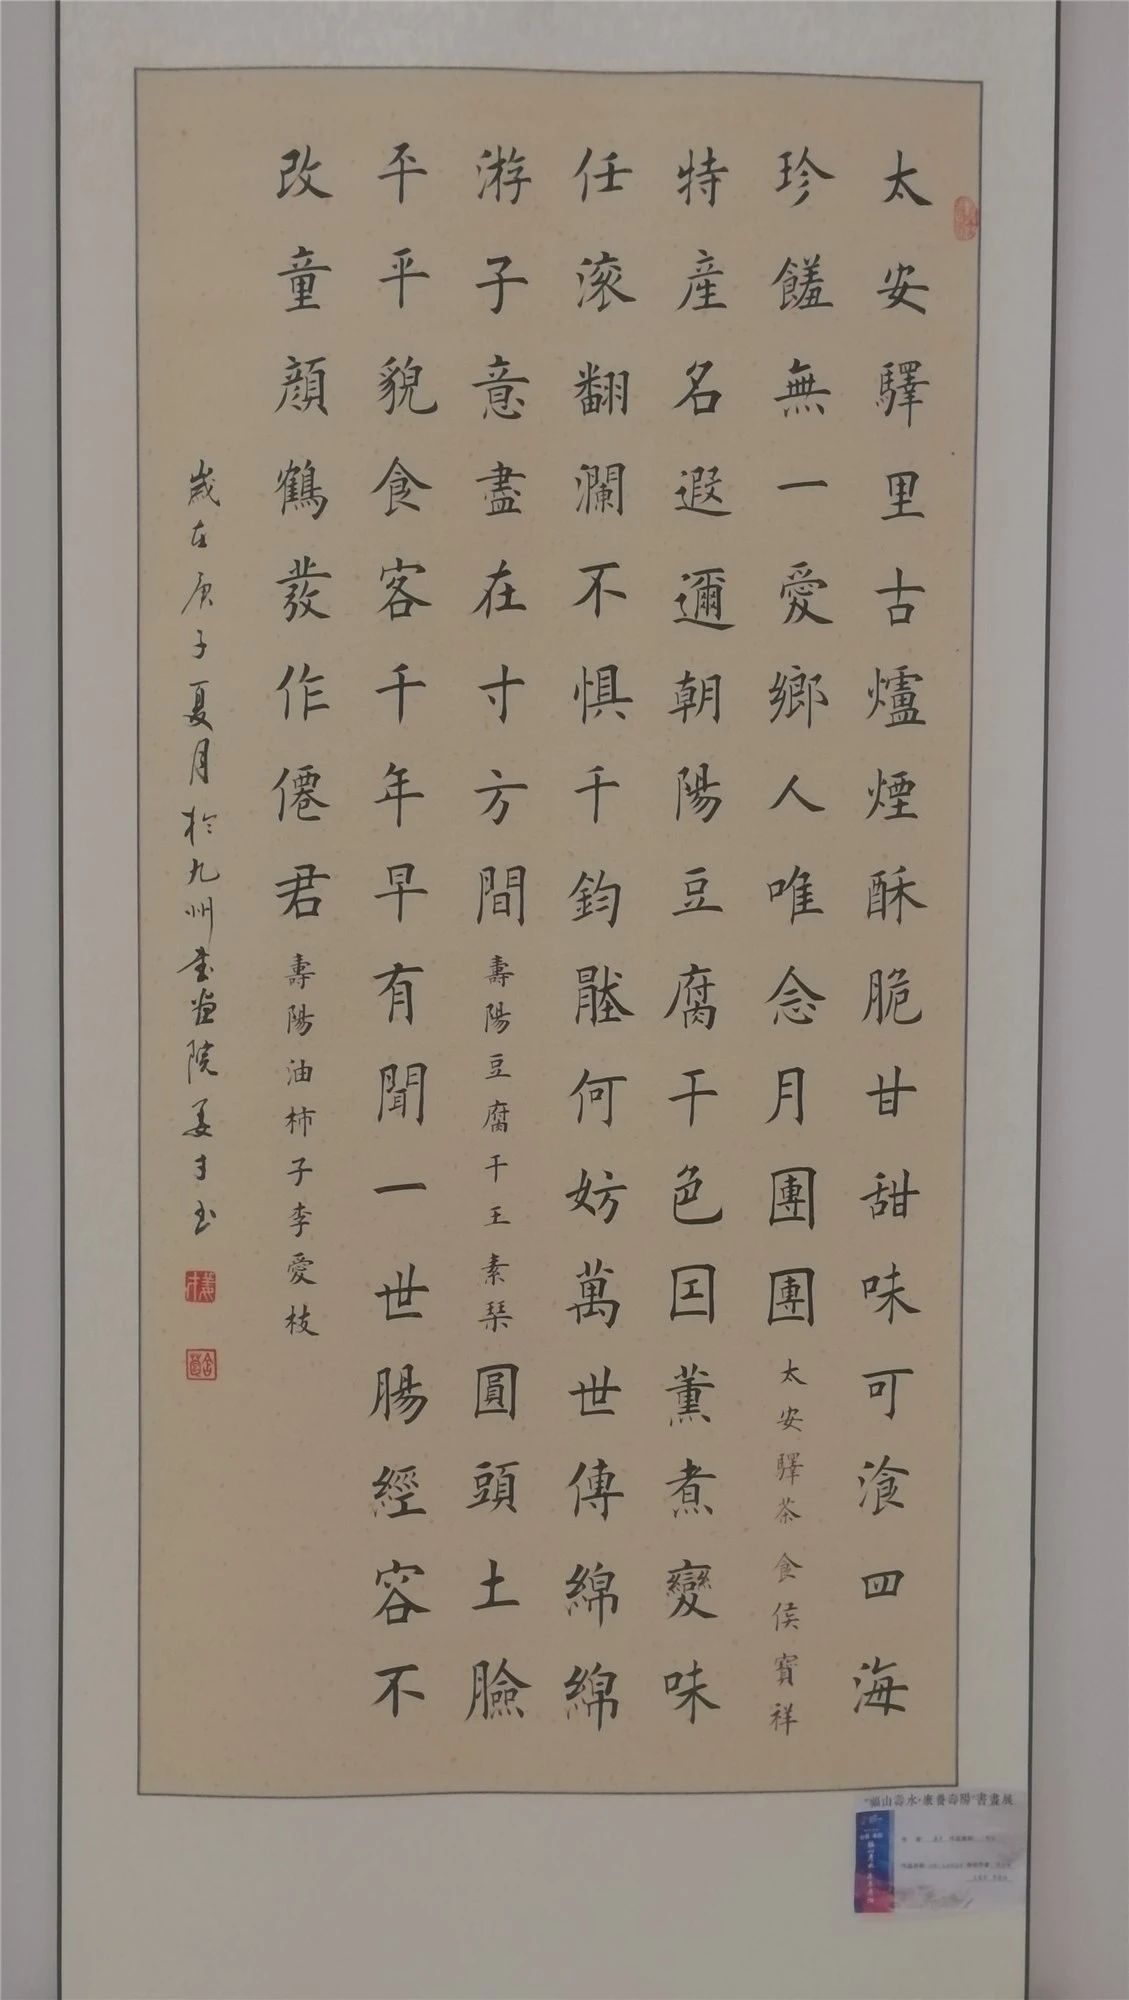 太安驛里古爐煙酥脆甘甜味可飡四海
珍饈無一愛鄉人唯念月團團太安驛茶食侯寶祥
特産名遐邇朝陽豆腐干色因薰煮變味
任滾翻瀾不懼千鈞何妨萬世傳綿綿
游子意盡在寸方間壽陽豆腐干王素琹圓頭土臉
平平貌食客千年早有聞一世腸經容不
改童顔鶴发作僊君壽陽油柿子李愛枝
歲在庚子夏月於九州書畫院姜才书
"福山壽水·康養壽陽"書畫展